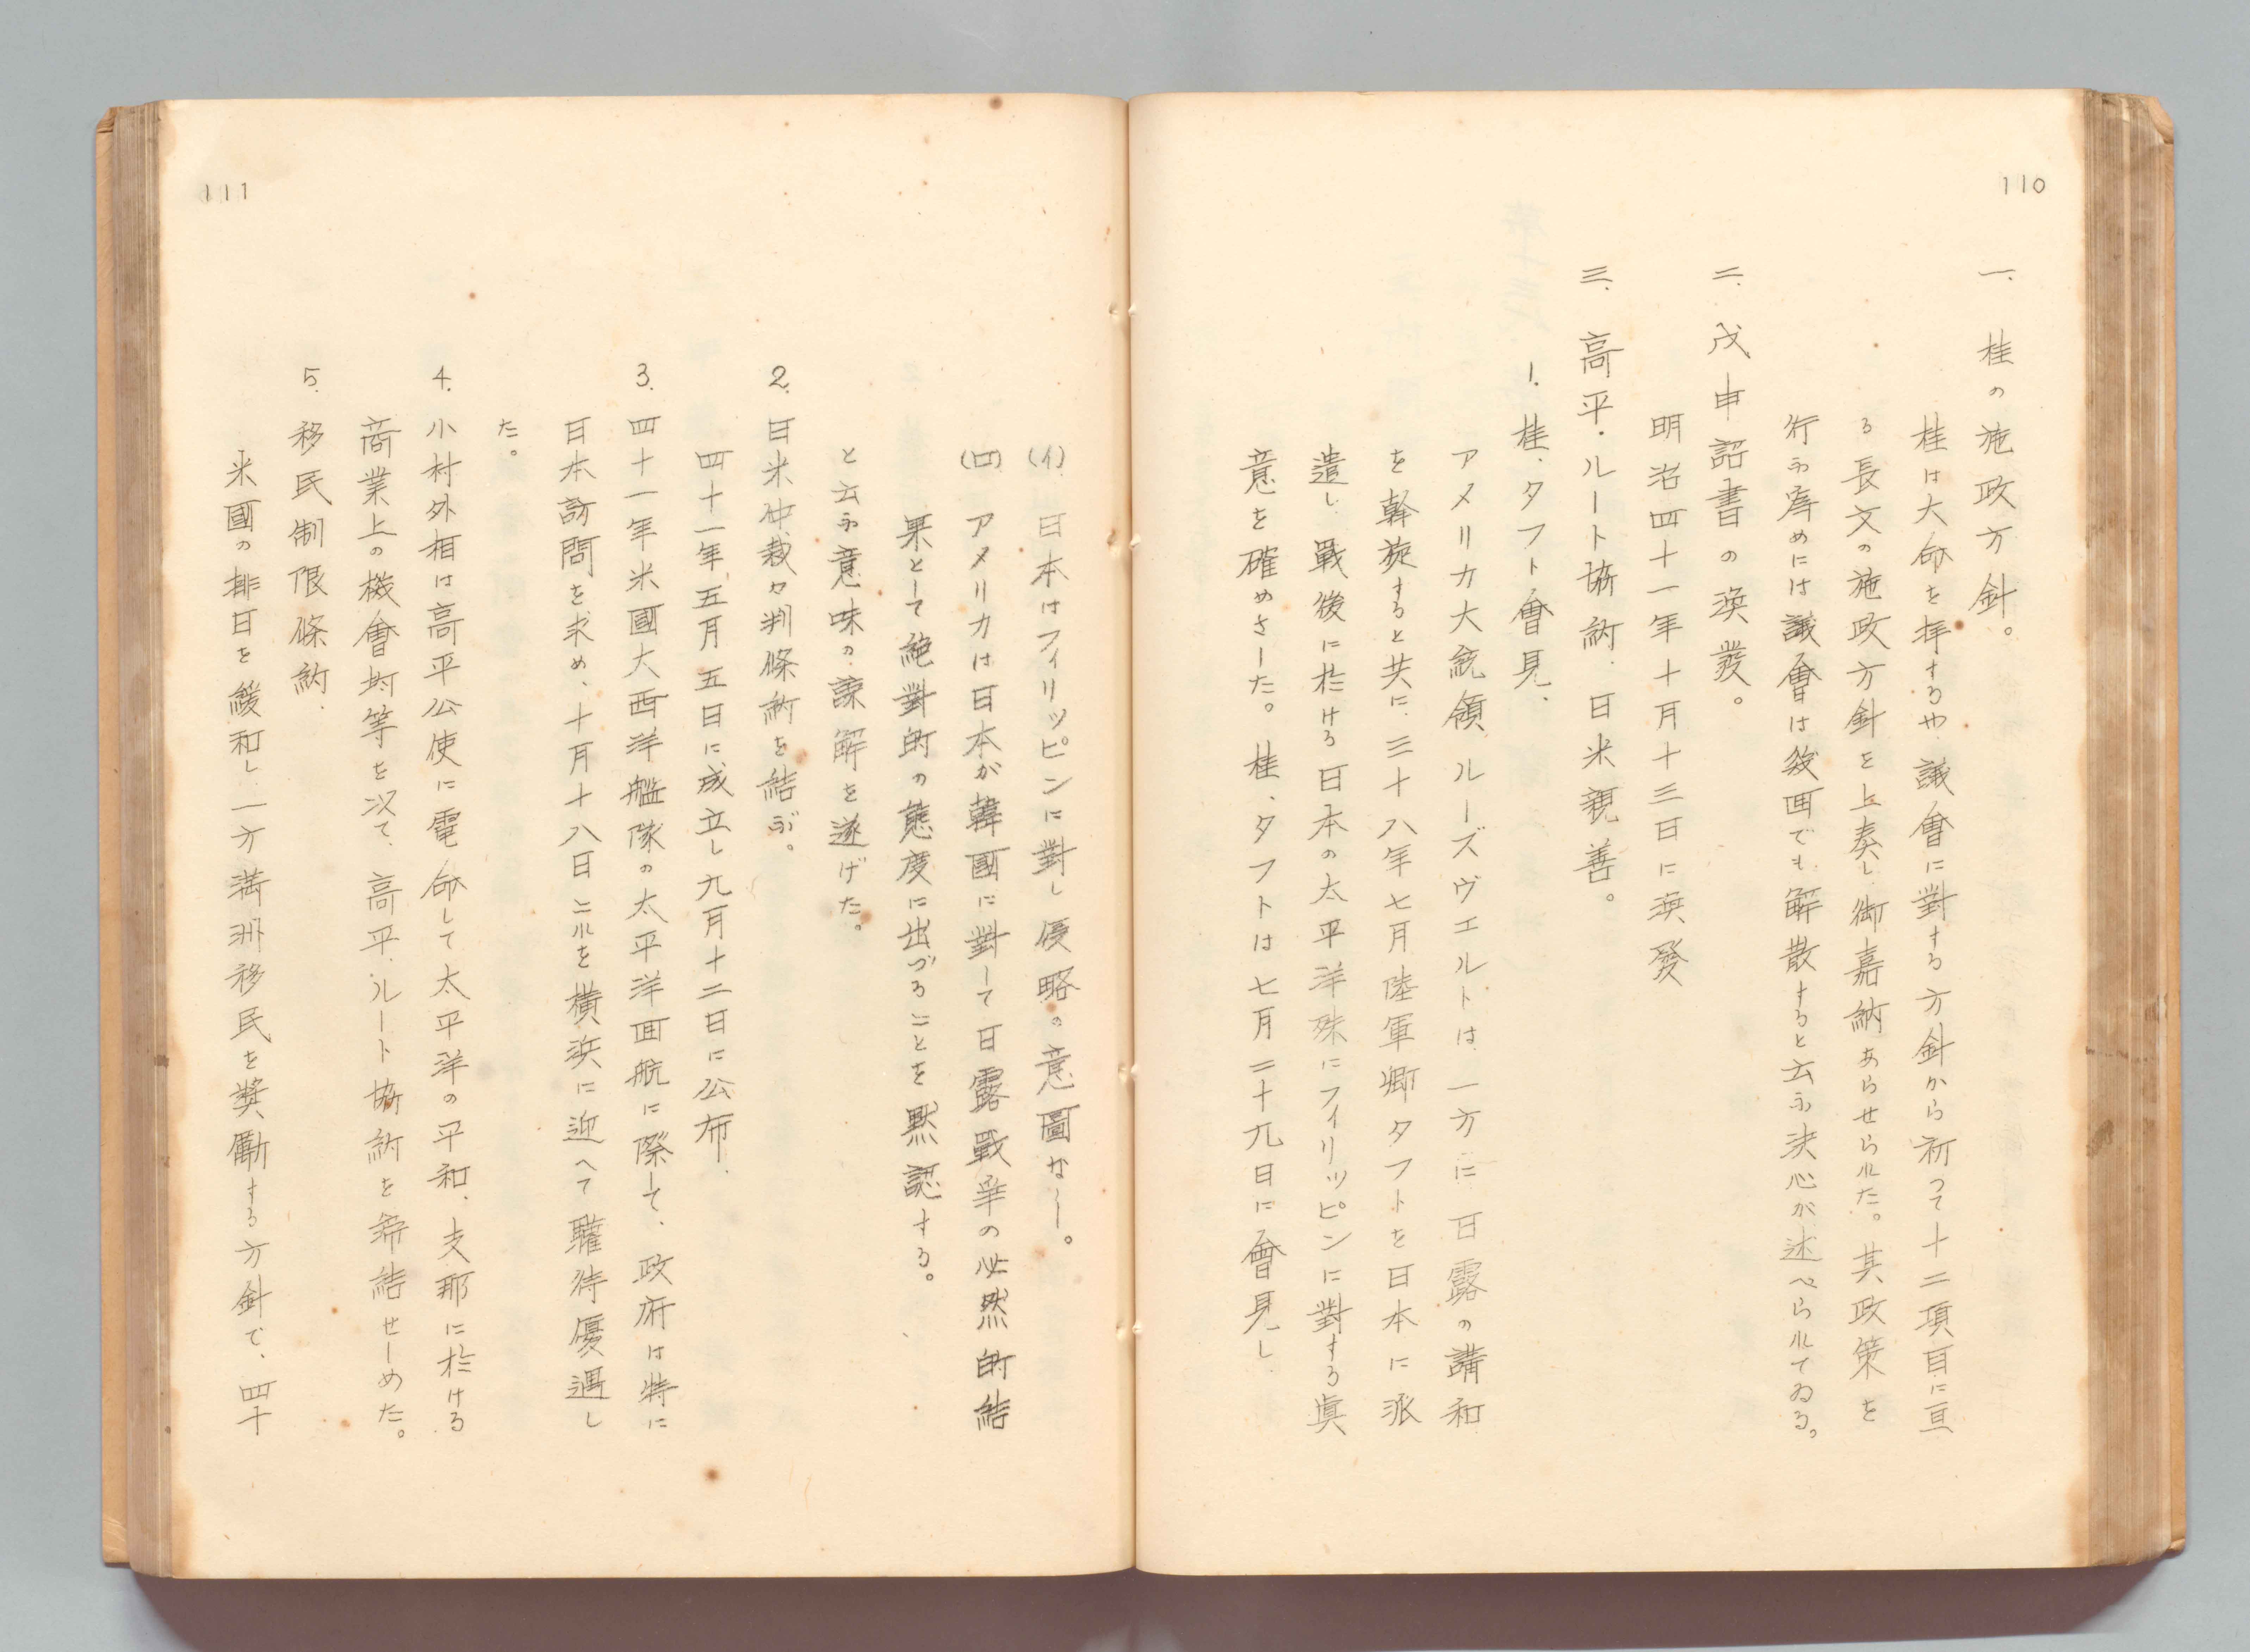 110
一. 桂の施政方針。
桂は大命を拝するや議會に對する方針から初つて十二項目に亘
る長文の施政方針を上奏し御嘉納あらせられた。其政策を
行ふ為めには議會は幾回でも解散すると云ふ決心が述べられてゐる。
二. 戊申詔書の渙發。
明治四十一年十月十三日に渙發
三. 高平・ルート協約. 日米親善。
1. 桂、タフト會見、
アメリカ大統領ルーズヴェルトは一方に日露の講和
を幹旋すると共に、三十八年七月陸軍卿タフトを日本に派
遣し、戰後に於ける日本の太平洋殊にフィリッピンに對する眞
意を確めさした。桂、タフトは七月二十九日に會見し.
(イ). 日本はフィリッピンに對し侵略の意圖なし。
(ロ) アメリカは日本が韓國に對して日露戰爭の必然的結
果として絶對的の態度に出づることを默認する。
と云ふ意味の諒解を遂げた。
2. 日米仲裁々判條約を結ぶ。
四十一年五月五日に成立し九月十二日に公布.
3. 四十一年米國大西洋艦隊の太平洋回航に際して、政府は特に
日本訪問を求め、十月十八日これを横浜に迎へて驩待優遇し
た。
4. 小村外相は高平公使に電命して太平洋の平和、支那に於ける
商業上の機會均等を以て、高平.ルート協約を締結せしめた。
5. 移民制限條約.
米國の排日を緩和し.一方満洲移民を奬勵する方針で、四十
111